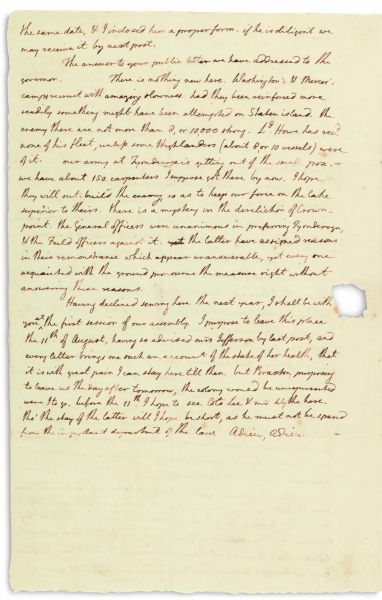 the same date, & I inclosed him a proper form. if he is diligent we
may receive it by next post.
The answer to your public letter we have addressed to the
governor. There is nothing new here. Washington's & Mercer's
camps recruit with amazing slowness. had they been reinforced more
readily something might have been attempted on Staten island. The
enemy there are not more than 8, or 10,000 strong. Ld. Howe has recd.
none of his fleet, unless some Highlanders (about 8 or 10 vessels) were
of it. our army at Tyonderoga is getting out of the small pox.
we have about 150. carpenters I suppose got there by now. I hope
they will out-build the enemy, so as to keep our force on the lake
superior to theirs. there is a mystery in the dereliction of Crown-
point. the General officers were unanimous in preferring Tyonderoga,
& the Field officers against it. the latter have assigned reasons
in their remonstrance which appear unanswerable, yet every one
acquainted with the ground pronounce the measure right without
answering these reasons.
Having declined serving here the next year, I shall be with
you at the first session of our assembly. I purpose to leave this place
the 11th of August, having so advised mrs Jefferson by last post, and
every letter brings me such an account of the state of her health, that
it is with great pain I can stay here till then. but Braxton purposing
to leave us the day after tomorrow, the colony would be unrepresented
were I to go. before the 11th I hope to see Colo. Lee & mr Wythe here,
tho' the stay of the latter will I hope be short, as he must not be spared
from the important department of the law. Adieu, adieu.